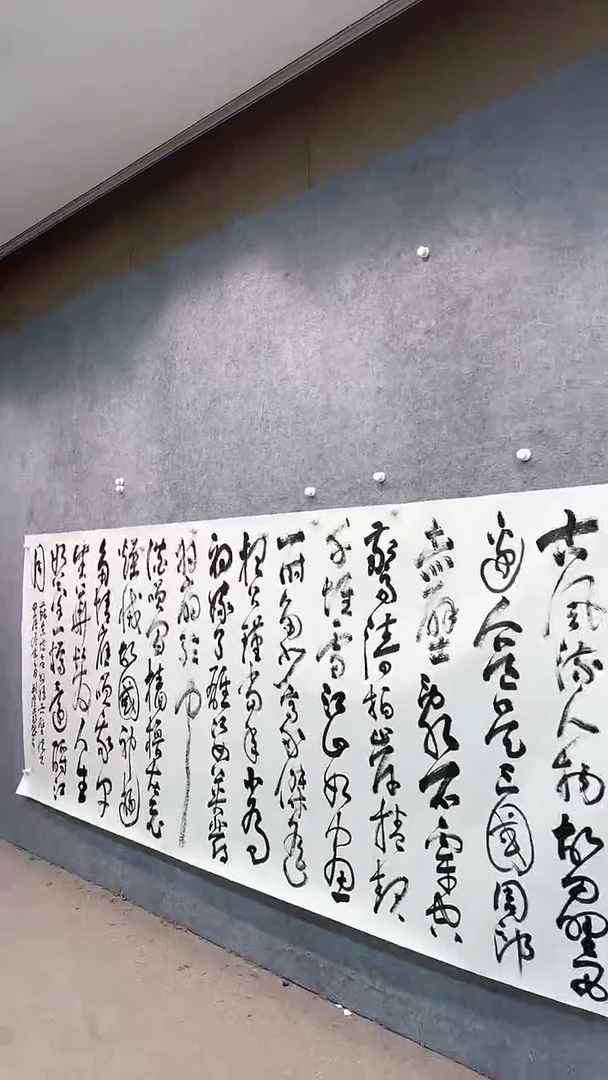 古風流人物故壘西
邊人道是三國周郎
赤壁亂石穿空
驚濤拍岸捲起
千堆雪江山如畫
一時多少豪傑遙
想公瑾當年小喬
初嫁了雄姿英發
羽扇綸巾
談笑間檣櫓灰飛
煙滅故國神遊
多情應笑我早
生華髮人生
如夢一樽還酹江
月